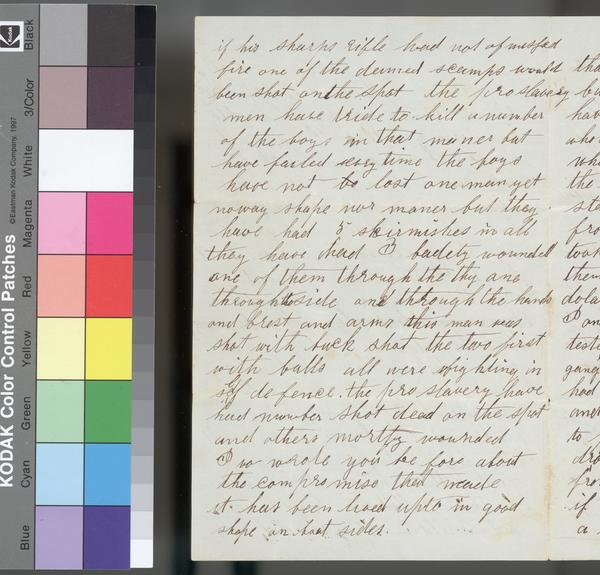 KODAK Color Control Patches
©Eastman Kodak Company, 1997
Kodak
Black
3/Color
White
Magenta
Red
Yellow
Green
Cyan
Blue
if his sharps rifle had not of missfad
fire one of the demed scamps would
been shot on the spot the proslavery
men have tride to kill a number
of the boys in that maner but
have failed every time the boys
have not lost one man yet
noway shape nor maner but they
have had 5 skirmishes in all
they have had 3 baddly wounded
one of them through the thy one
through side one through the hands
and brest and arms this man was
shot with buck shot the two first
with balls all were fighting in
self defence. the proslavery have
had number shot dead on the spot
and others mortly wounded
I wrote you be fore about
the compromise that made
it has been lived upto in good
shape on boat sides.
tha
by
hav
who
wha
the
sta
fro
took
them
dola
I an
test
gang
had
and
to
dro
fro
if
a